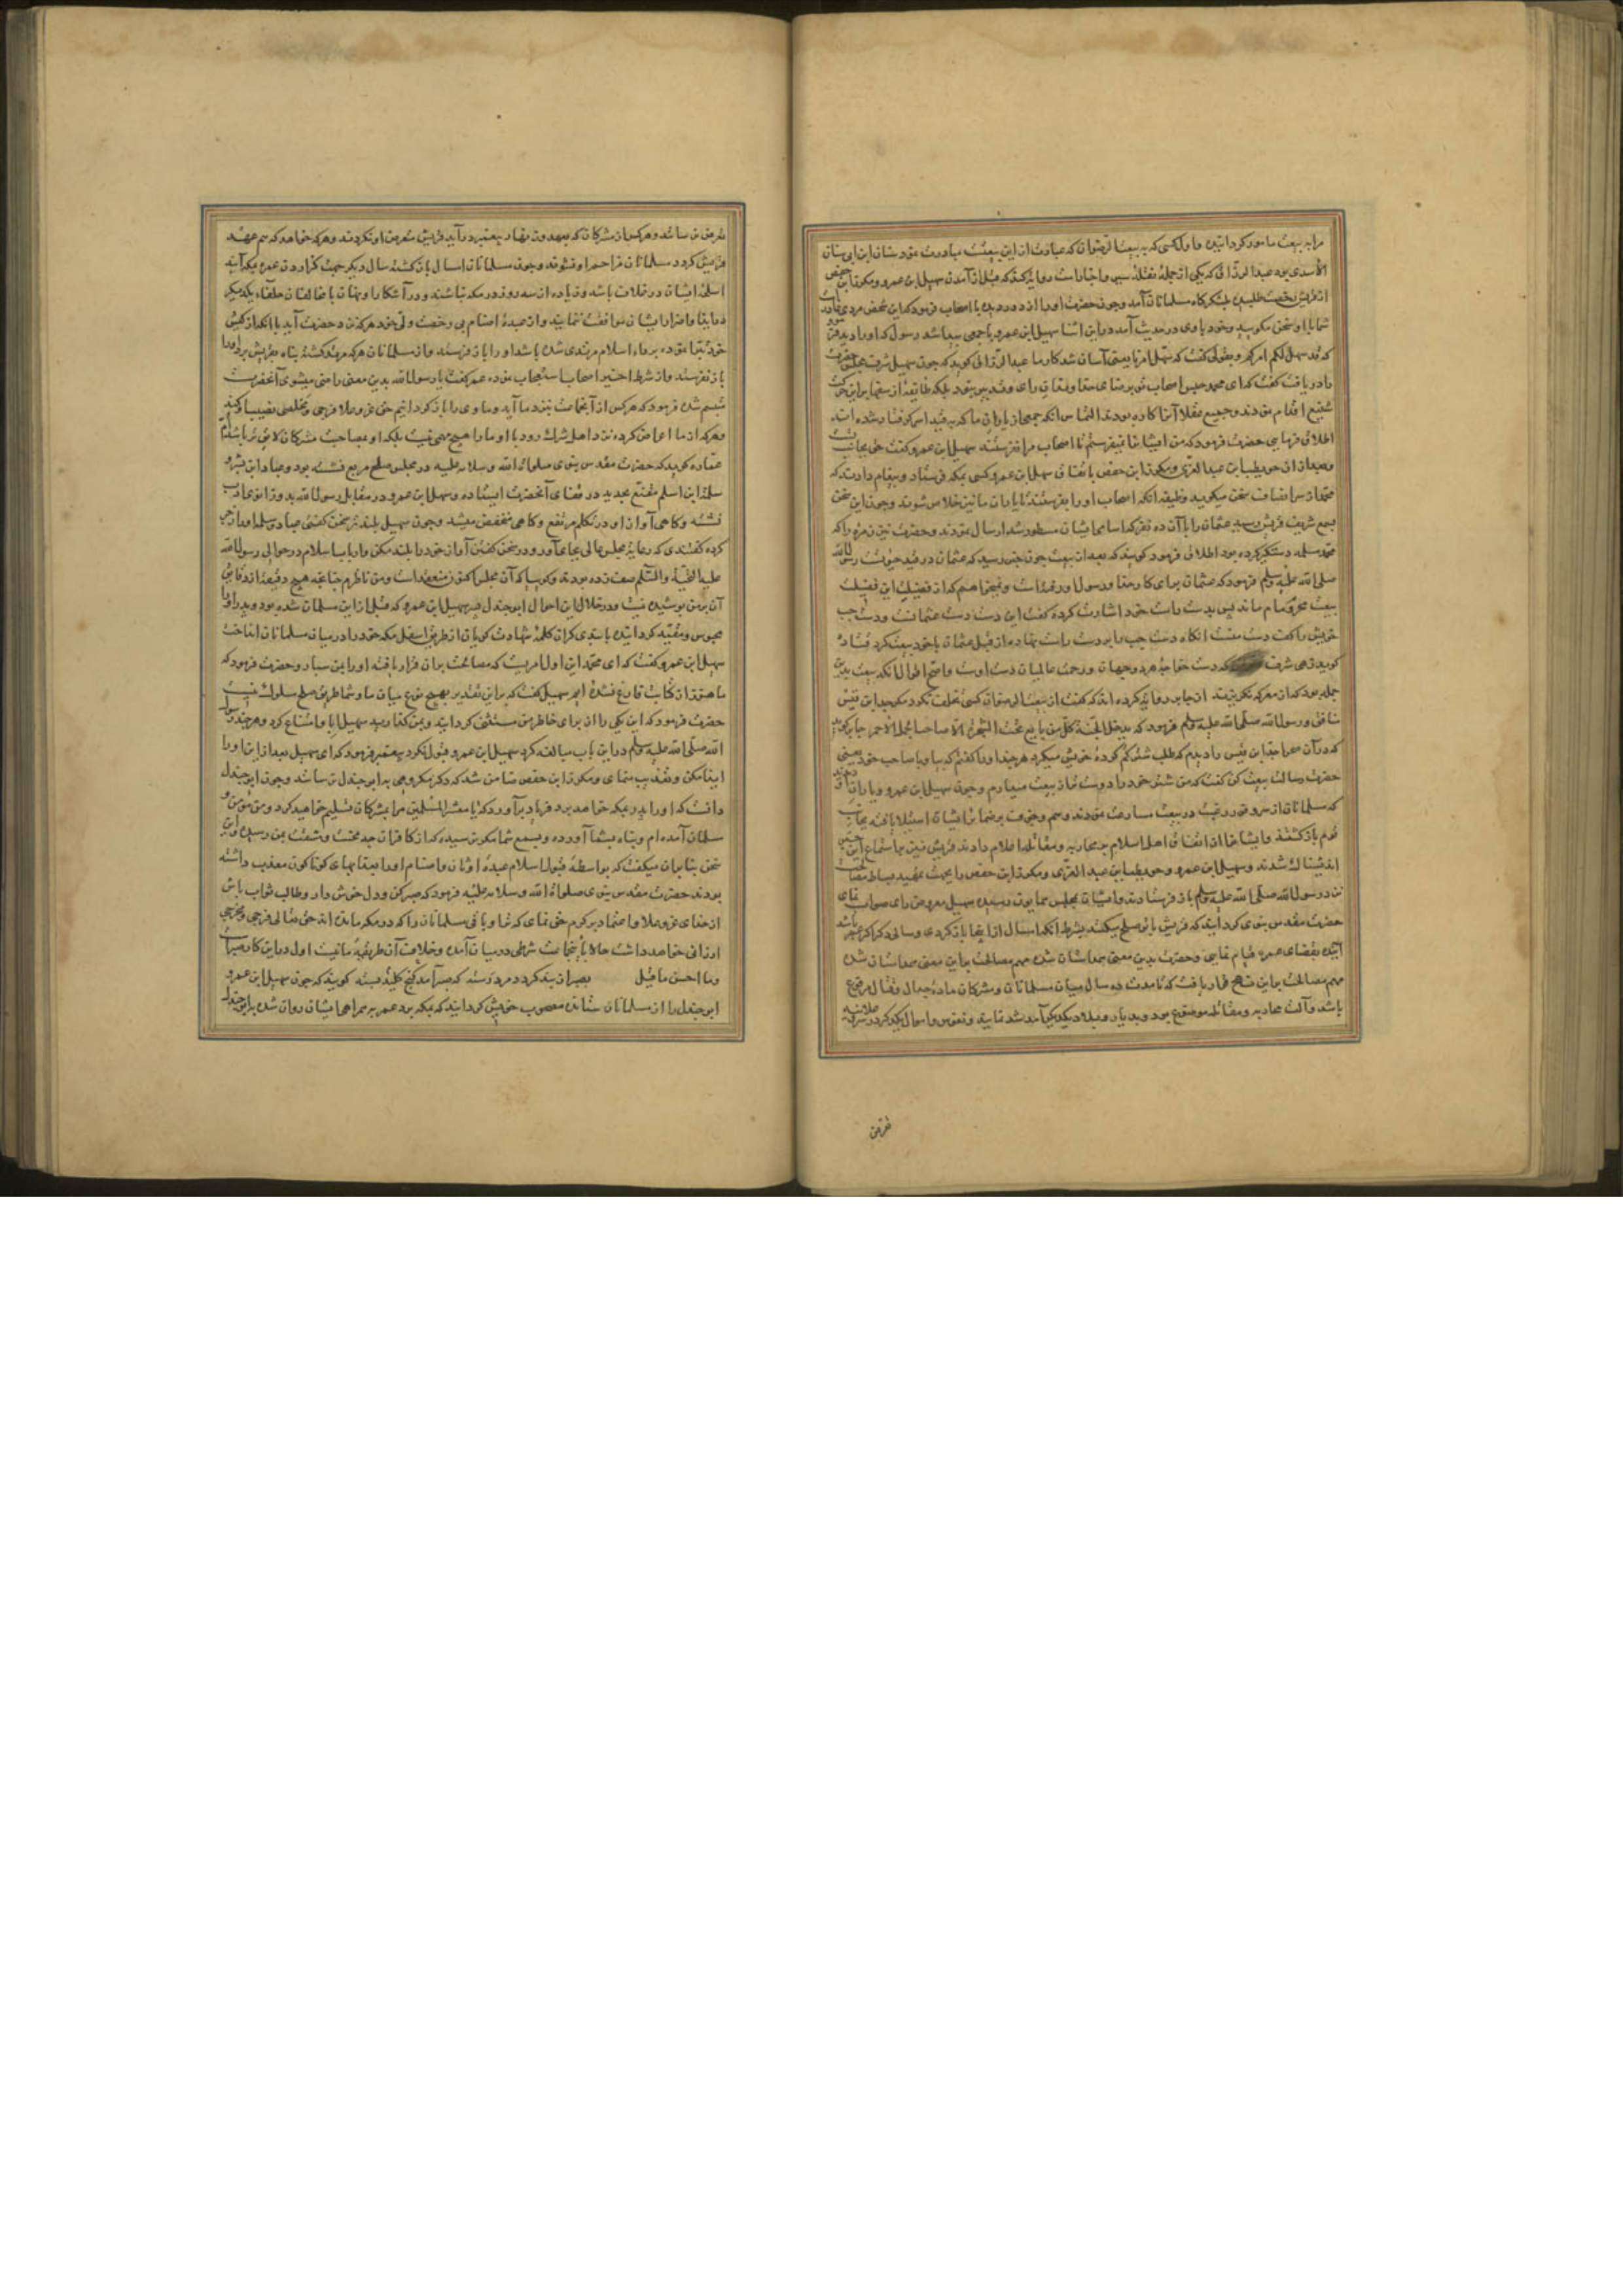 مرا به بیعت مامور گردانیدن و اول کسی که به بیعة الرضوان که عبارت از این بیعتست مبادرت نمود سنان ابن ابی سنان
الاسدی بود عبدالرزاق که یکی از جمله نقله سیر و اخبارست روایة کند که قبل از آمدن سهیل ابن عمرو و مکرز ابن حفص
از قریش رخصت طلبیده بلشکرگاه مسلمانان آمد و چون حضرت او را از دور دید با اصحاب فرمود که این شخص مردی
شما با او سخن مگویید و خود با وی در حدیث آمد در این اثنا سهیل ابن عمرو با جمعی پیدا شد رسول که او را دید فرمود
که قد سهل لکم امرکم و بقولی گفت که سهل امرنا یعنی آسان شد کار ما عبدالرزاق گوید که چون سهیل شرف مجلس حضرت
را دریافت گفت که ای محمد حبس اصحاب تو برضای عقلا و باتفاق رای و تدبیر نبود بلکه طایفه از سفها بر این حرکت
شنیع اقدام نمودند و جمیع عقلا آنرا کاره بودند التماس آنکه جمعی از یاران ما که به قید اسر گرفتار شده اند
اطلاق فرمایی حضرت فرمود که من ایشانرا نمیفرستم تا اصحاب مرا نفرستند سهیل ابن عمرو گفت
و بعد از آن حویطب ابن عبدالعزی و مکرز ابن حفص باتفاق سهیل ابن عمرو کسی بمکه فرستاد و پیغام دادند که
محمد از سر انصاف سخن میگوید وظیفه آنکه اصحاب او را بفرستند تا یاران ما نیز خلاص شوند و چون این سخن
بسمع شریف قریش رسید عثمان را با آن ده نفر که اسامی ایشان مسطور شد ارسال نمودند و حضرت نیز زمره را که
محمد مسلمه دستگیر کرده بود اطلاق فرمود گویند که بعد از بیعت چون خبر رسید که عثمان در قید حیوتست رسول الله
صلی الله علیه وسلم فرمود که عثمان برای کار خدا و رسول او رفته است و نمیخواهم که از فضیلت این
بیعت محروم ماند پس بدست راست خود اشارت کرده گفت این دست دست عثمانست و دست چپ
خویش را گفت دست منست آنگاه دست چپ بر دست راست نهاده از قبل عثمان با خود بیعت کرد
گوید زهی شرف که دست خواجه هر دو جهان و رحمت عالمیان دست اوست و اصح اقوال آنکه بیعت بدین
جمله بود که از معرکه نگریزند از جابر روایة کرده اند که گفت از بیعة الرضوان کسی تخلف نکرد مگر جد ابن قیس
منافق و رسول الله صلی الله علیه وسلم فرمود که یدخل الجنة کل من بایع تحت الشجرة الا صاحب الجمل الاحمر جابر گوید
که در آن صحرا جد ابن قیس را دیدم که طلب شتر گم کرده خویش میکرد هرچند او را گفتم که بیا و با صاحب خود یعنی
حضرت رسالت بیعت کن گفت که من شتر خود را دوست تر از بیعت میدارم و چون سهیل ابن عمرو و یاران او دیدند
که مسلمانان از سر ذوق و رغبت در بیعت مسارعت نمودند وهم و خوف بر ضمایر ایشان استیلا یافته بجانب
قوم بازگشتند و ایشانرا از اتفاق اهل اسلام به محاربه و مقاتله اعلام دادند قریش نیز به استماع این
اندیشناک شدند و سهیل ابن عمرو و حویطب ابن عبدالعزی و مکرز ابن حفص را بجهت تمهید بساط مصالحت
نزد رسول الله صلی الله علیه وسلم باز فرستادند و ایشان بمجلس همایون رسیده سهیل معروض رای صواب نمای
حضرت مقدس نبوی گردانید که قریش با تو صلح میکنند بشرط آنکه امسال از اینجا بازگردی و سال دیگر اگر میسر باشد
آینده بقضای عمره قیام نمایی و حضرت بدین معنی همداستان شده مهم مصالحت بر این معنی همداستان شدن
مهم مصالحت بر این نهج قرار یافت که تا مدت ده سال میان مسلمانان و مشرکان ماده جدال و قتال مرفوع
باشد و آلت محاربه و مقاتله موضوع بود و بدیار و بلاد یکدیگر آمد شد نمایند و نفوس و اموال یکدیگر در
تعرض
تعرض نرسانند و هرکس از مشرکان که بعهد و زنهار پیغمبر درآید قریش متعرض او نگردند و هرکه خواهد که هم عهد
قریش گردد مسلمانان مزاحم او نشوند و چون مسلمانان امسال بازگشته سال دیگر جهت گزاردن عمره بمکه آیند
اسلحه ایشان در غلاف باشد و زیاده از سه روز در مکه نباشند و در آشکارا و نهان با مخالفان حلفاء یکدیگر
در ایذا و اضرار ایشان موافقت ننمایند و از عبده اصنام بی رخصت ولی خود هرکه نزد حضرت آید با آنکه از کیش
خود تبرا نموده برداء اسلام مرتدی شده باشد او را باز فرستند و از مسلمانان هرکه مرتد گشته پناه بقریش برد او را
باز نفرستند و از شرط اخیر اصحاب استعجاب نموده عمر گفت یا رسول الله بدین معنی راضی میشوی آنحضرت
متبسم شده فرمود که هرکس از آنجماعت نزد ما آید و ما وی را بازگردانیم حق عز و علا فرجی و مخلصی نصیب او کند
و هرکه از ما اعراض کرده نزد اهل شرک رود با او ما را هیچ مهمی نیست بلکه او بمصاحبت مشرکان لایق تر باشد
گوید که حضرت مقدس نبوی صلوات الله و سلامه علیه در مجلس صلح مربع نشسته بود و عباد ابن بشر و
سلمة ابن اسلم مقنع بحدید در قفای آنحضرت ایستاده و سهیل ابن عمرو در مقابل رسول الله بدو زانوی ادب
نشسته و گاهی آواز او در تکلم مرتفع و گاهی منخفض میشد و چون سهیل بلند تر سخن گفتی عباد و سلمه او را زجر
کرده گفتندی که رعایة مجلس عالی بجای آور و در سخن گفتن آواز خود را بلند مکن و ارباب اسلام در حوالی رسول الله
علیه التحیة والسلم صف زده بودند و گوییا که آن مجلس اکنون منعقد است و من ناظرم چنانچه هیچ دقیقه از دقایق
آن بر من پوشیده نیست و در خلال این احوال ابوجندل پسر سهیل ابن عمرو که قبل از این مسلمان شده بود و پدر او را
محبوس و مقید گردانیده با بندی گران کلمه شهادت گویان از طریق اسفل مکه خود را در میان مسلمانان انداخت
سهیل ابن عمرو گفت که ای محمد این اول امریست که مصالحت بران قرار یافته او را بمن سپار و حضرت فرمود که
ما هنوز از کتاب فارغ نشده ایم سهیل گفت که بر این تقدیر بهیچ نوع میان ما و شما طریق صلح مسلوک نیست
حضرت فرمود که این یکی را از برای خاطر من مستثنی گردانید و بمن گذارید سهیل ابا و امتناع کرد و هرچند رسول
الله صلی الله علیه وسلم در این باب مبالغه کرد سهیل ابن عمرو قبول نکرد پیغمبر فرمود که ای سهیل بعد از این او را
ایذا مکن و تعذیب منمای و مکرز ابن حفص ضامن شد که دگر مکروهی به ابوجندل نرسانند و چون ابوجندل
دانست که او را پدر بمکه خواهد برد فریاد برآورد که یا معشر المسلمین مرا بمشرکان تسلیم خواهید کرد و من مؤمن و
مسلمان آمده ام و پناه بشما آورده و بسمع شما مگر نرسیده که از کافران چه محنت و مشقت بمن رسیده و این
سخن بنا بران میگفت که بواسطه قبول اسلام عبده اوثان و اصنام او را بعقابهای گوناگون معذب داشته
بودند حضرت مقدس نبوی صلوات الله و سلامه علیه فرمود که صبر کن و دل خوش دار و طالب ثواب باش
از خدای عز و علا و اعتماد بر کرم حق نمای که ترا و باقی مسلمانان را که در مکه مانده اند حق تعالی فرجی و مخرجی
ارزانی خواهد داشت حالا با آنجماعت شرطی در میان آمده و خلاف آن طریقه ما نیست اول در این کار صبر
وما احسن ما قیل بصبر از بند گردد مرد رسته که صبر آمد کلید گنج بسته گویند که چون سهیل ابن عمرو
ابوجندل را از مسلمانان ستانده مصحوب خویش گردانید که بمکه برد عمر به همراهی ایشان روان شده با ابوجندل